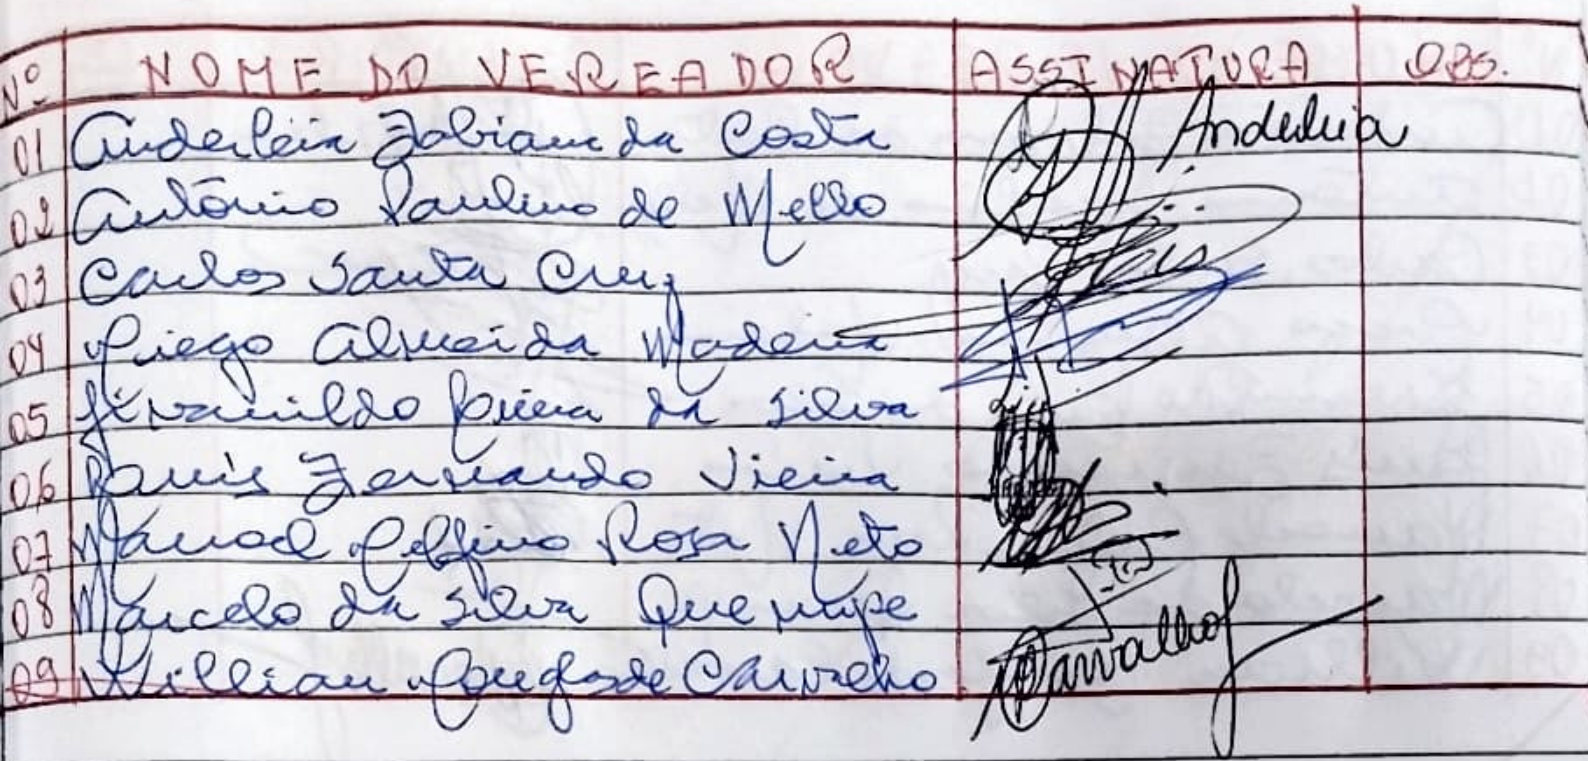 Nº NOME DO VEREADOR ASSINATURA OBS.
01 Anderleia Fabiana da Costa Anderleia
02 Antônio Paulino de Mello
03 Carlos Santa Cruz
04 Diego Almeida Madeira
05 da Silva
06 Fernando Vieira
07 Manoel Delfino Rosa Neto
08 Marcelo da Silva
09 Willian de Carvalho Carvalho